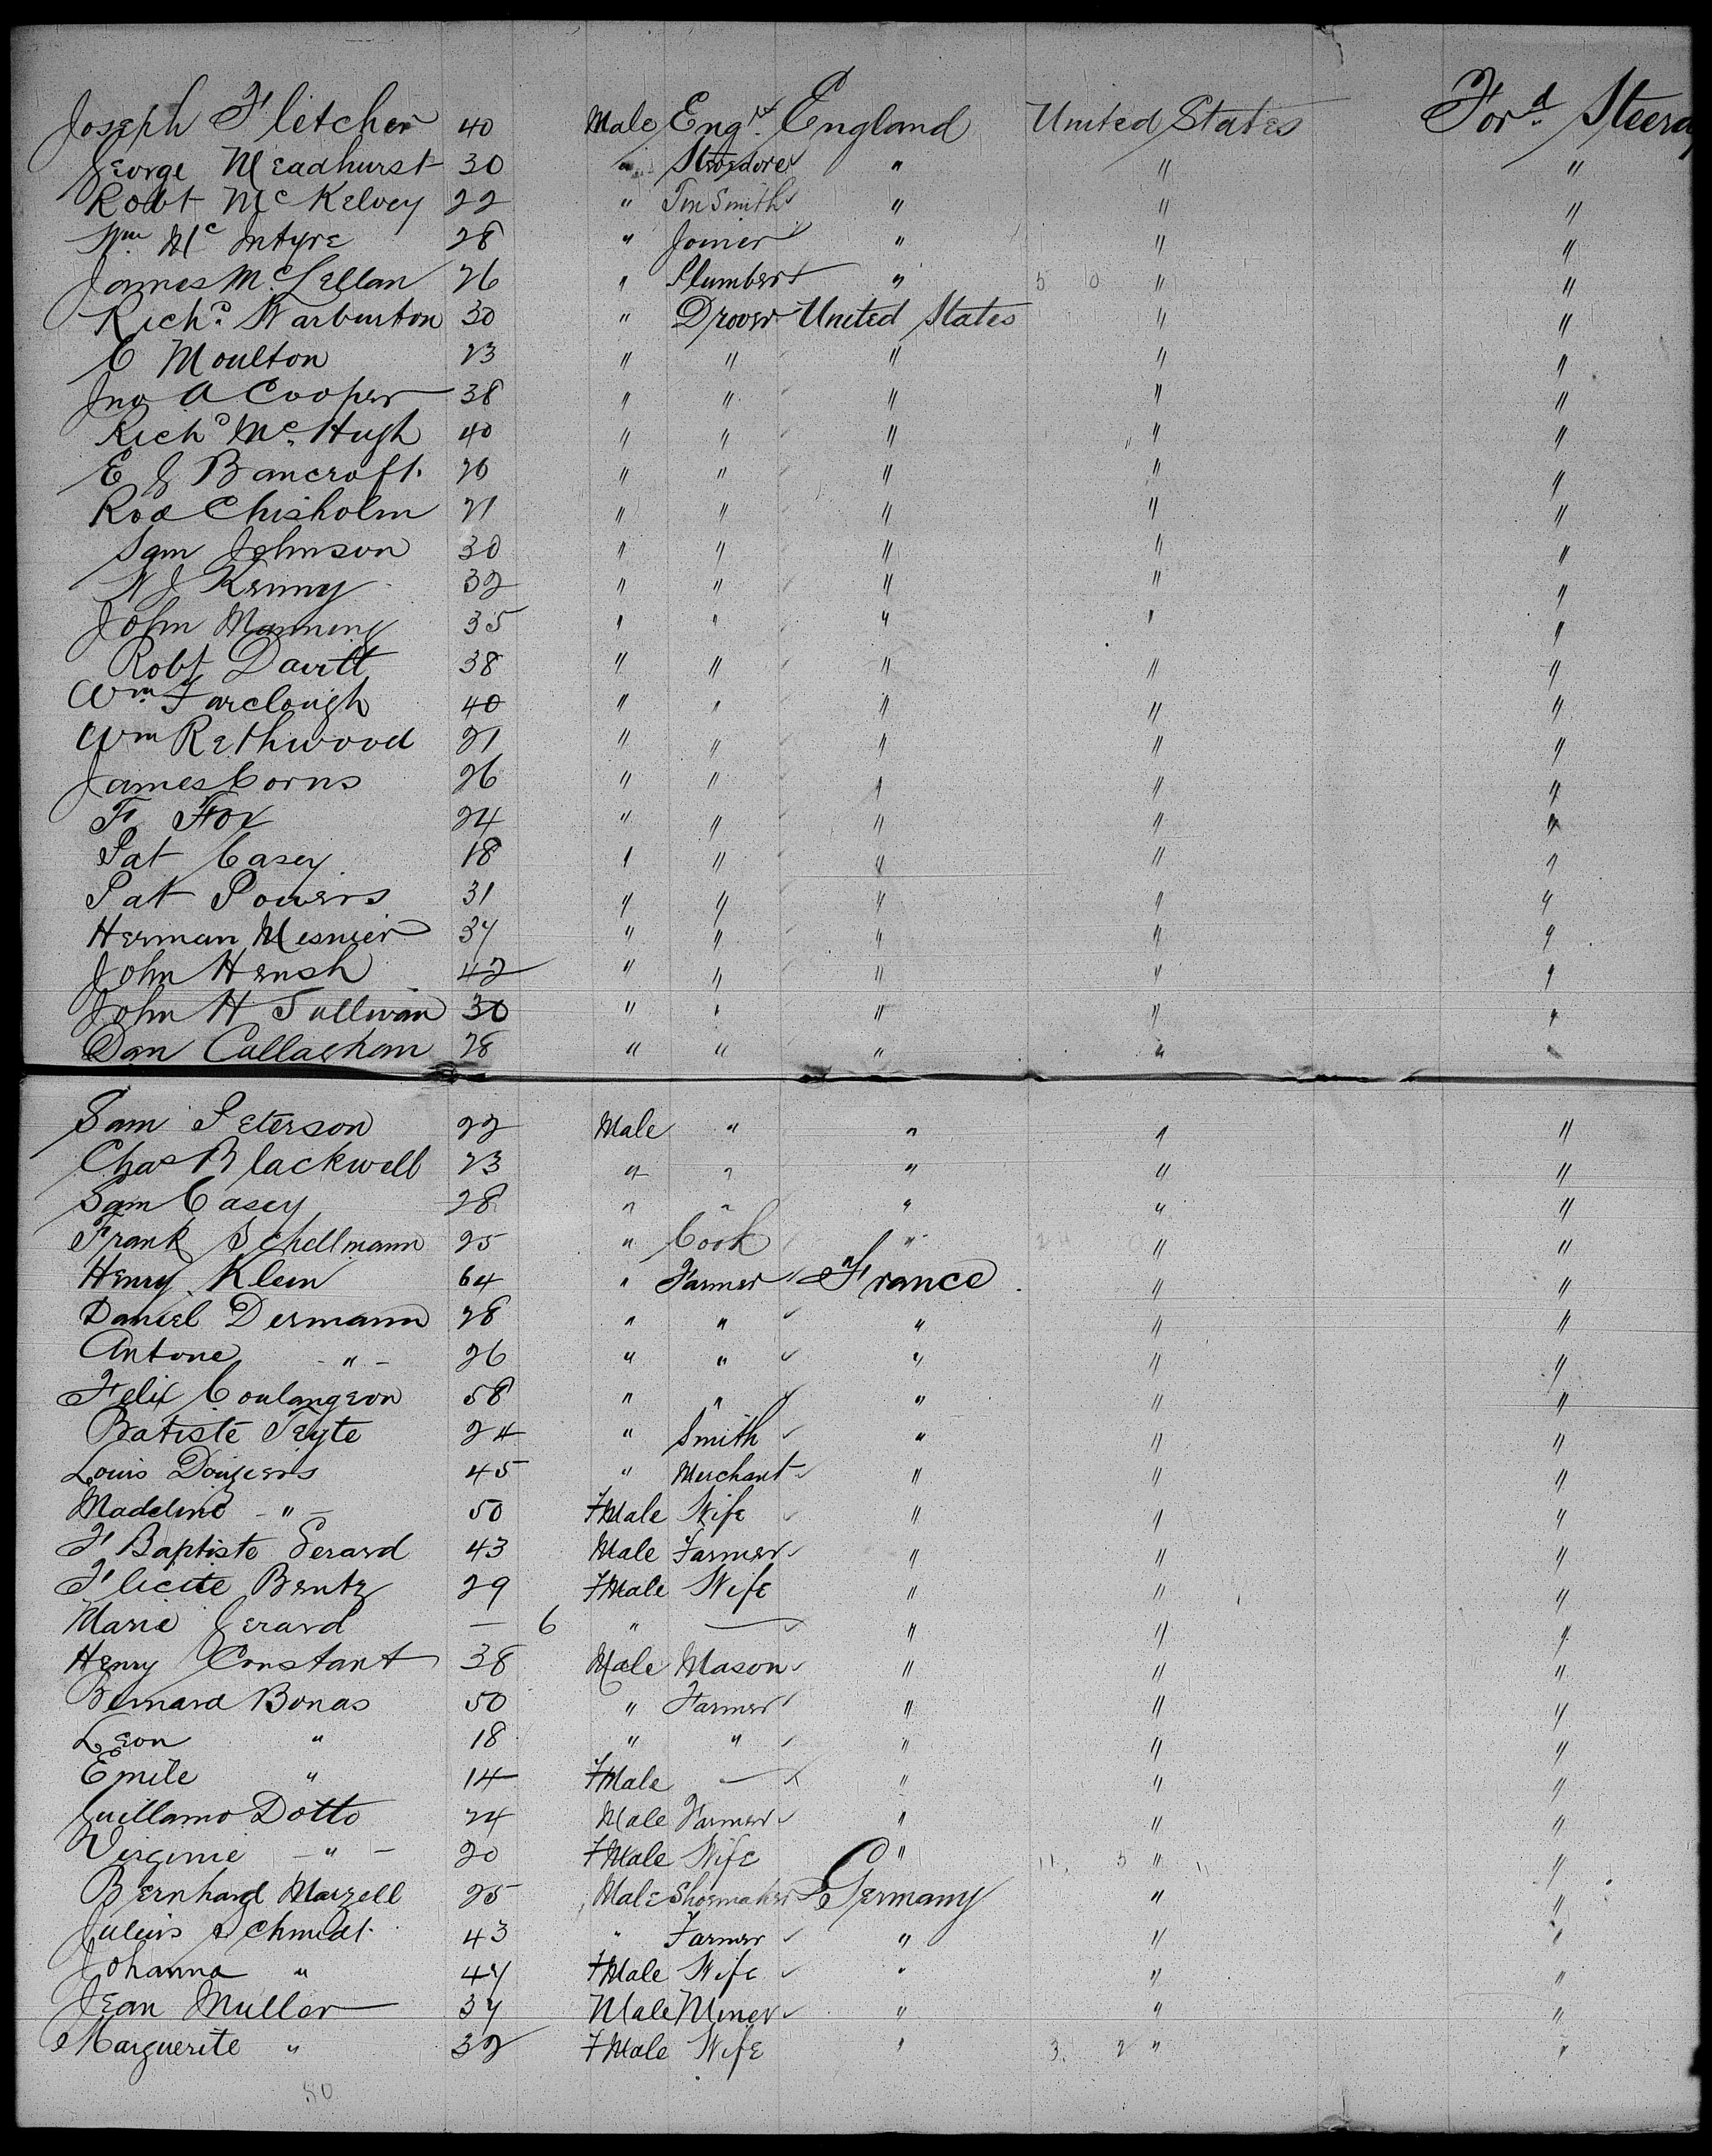 Joseph Fletcher 40 Male Engr. England United States Ford. Steera
George Meadhurst 30 " Stevedore " " "
Robt McKelvey 22 " Tin Smith " " "
Wm. McIntyre 28 " Joiner " " "
James McLellan 26 " Plumber " 5 0 " "
Richd. Warburton 30 " Drover United States " "
C Moulton 23 " " " " "
Jno A Cooper 38 " " " " "
Richd McHugh 40 " " " " "
E J Bancroft. 26 " " " " "
Rod Chisholm 21 " " " " "
Sam Johnson 30 " " " " "
W J Kenny 32 " " " " "
John Manning 35 " " " " "
Robt Davitt 38 " " " " "
Wm. Farclough 40 " " " " "
Wm Rethwood 21 " " " " "
James Corns 26 " " " " "
F. Fox 24 " " " " "
Pat Casey 18 " " " " "
Pat Powers 31 " " " " "
Herman Mesnier 37 " " " " "
John Hensh 42 " " " " "
John H Sullivan 30 " " " " "
Dan Callaghan 28 " " " " "
Sam Peterson 22 Male " " " "
Chas Blackwell 23 " " " " "
Sam Casey 28 " " " " "
Frank Schellmann 25 " Cook " " "
Henry Klein 64 " Farmer France " "
Daniel Dermann 28 " " " " "
Antone - " - 26 " " " " "
Felix Coulangeon 58 " " " " "
Batiste Teyte 24 " Smith " " "
Louis 45 " Merchant " " "
Madeline - " - 50 FMale Wife " " "
F Baptiste Gerard 43 Male Farmer " " "
Flicite Bentz 29 FMale Wife " " "
Marie Gerard — 6 " — " " "
Henry Constant 38 Male Mason " " "
Bernard Bonas 50 " Farmer " " "
Leon " 18 " " " " "
Emile " 14 FMale — " " "
Guillamo Dotto 24 Male Farmer " " "
Virginie - " - 20 FMale Wife " 11. 5 " "
Bernhard Marzell 25 Male Shoemaker Germany " "
Julius Schmidt. 43 " Farmer " " "
Johanna " 47 FMale Wife " " "
Jean Muller 37 Male Miner " " "
Marguerite " 32 FMale Wife " 3. 2 " "
50